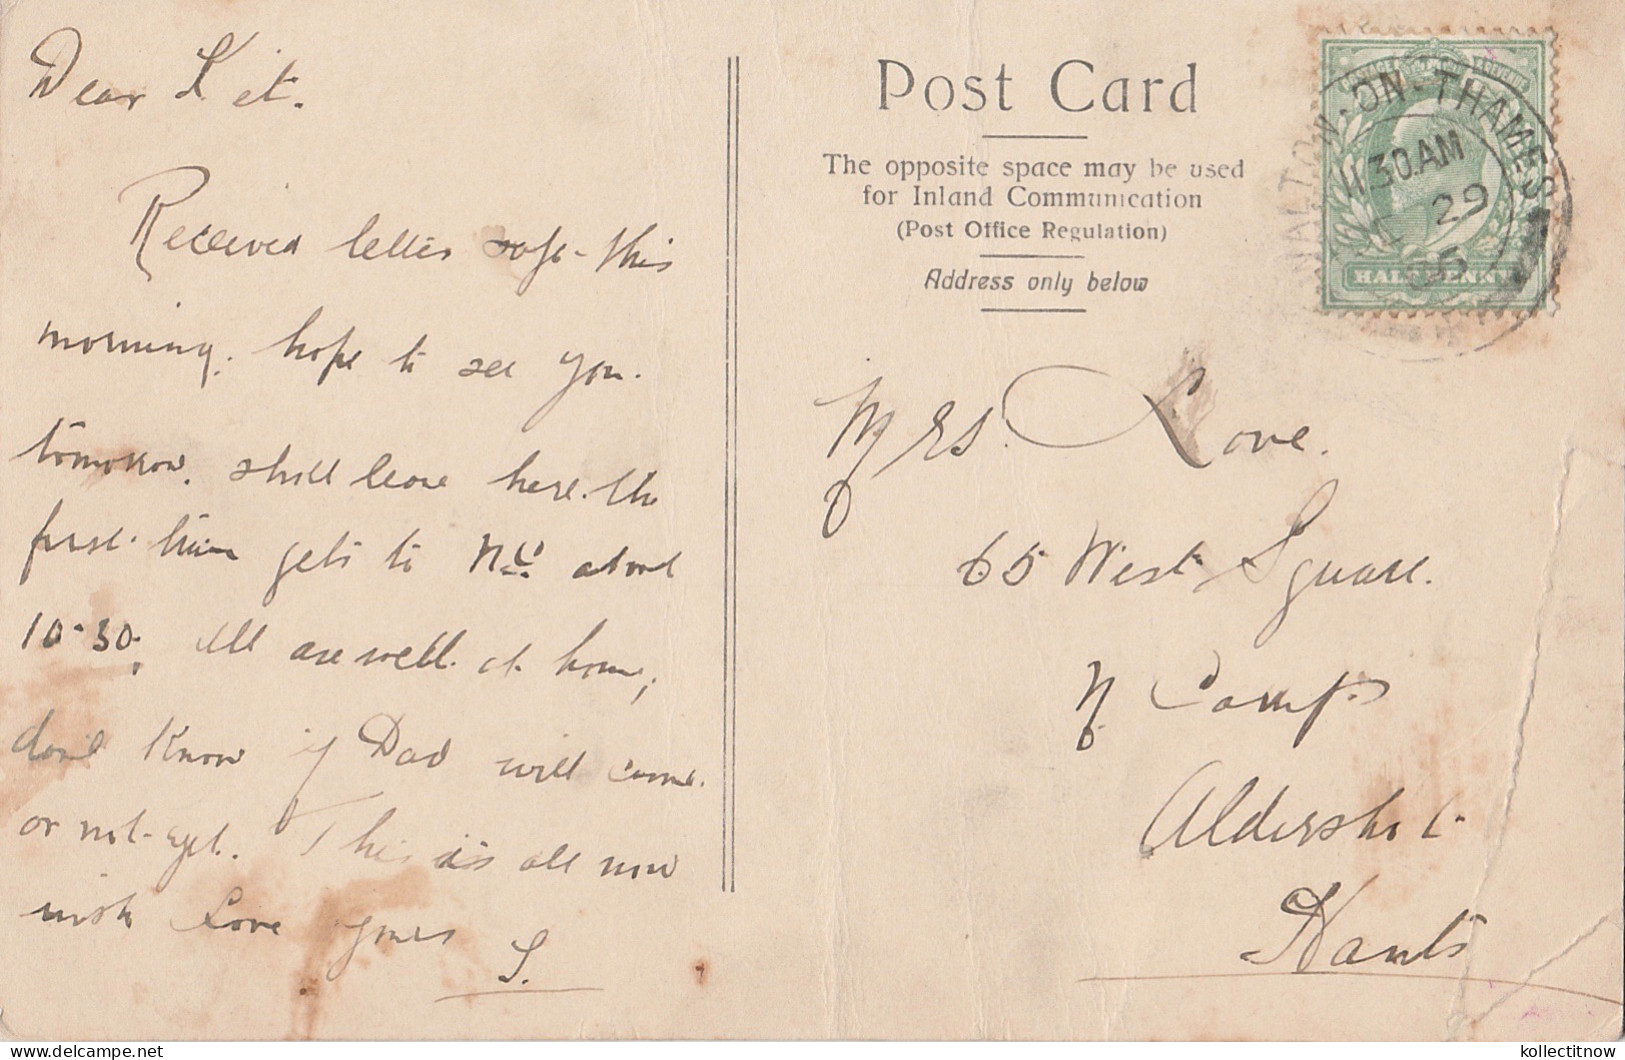 Dear Kit.
Received letter safe this
morning. hope to see you.
tomorrow. shall leave here. the
first train gets to N.C about
10-30. All are well at home,
don't know if Dad will come.
or not yet. This is all now
with Love yours
S.
Post Card
The opposite space may be used
for Inland Communication
(Post Office Regulation)
Address only below
WALTON-ON-THAMES
11.30AM
29
05
POSTAGE & REVENUE
HALFPENNY
Mrs. Love.
65 West Square.
N Camp
Aldershot
Hants
kollectitnow